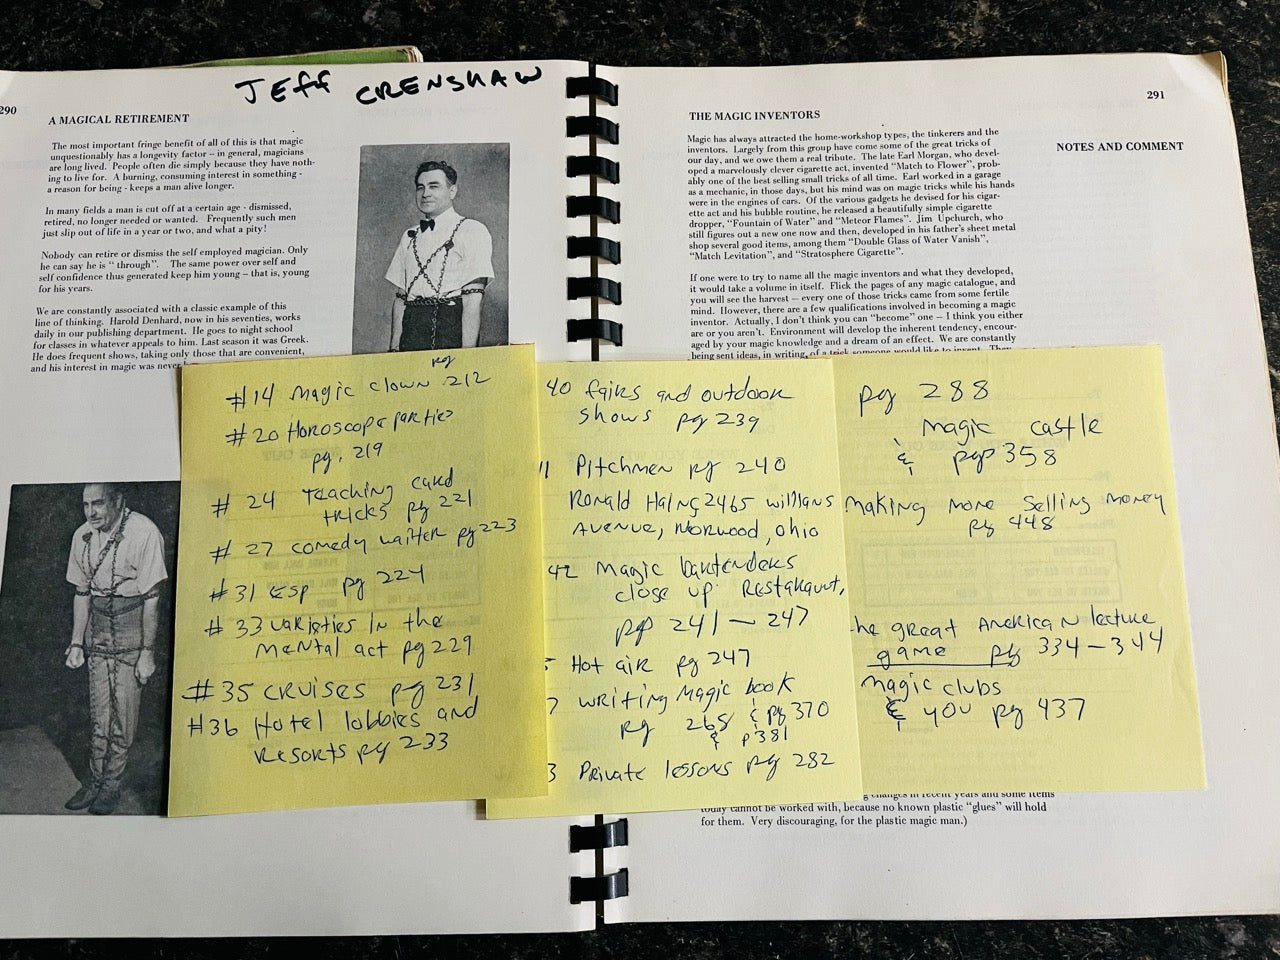 JEFF CRENSHAW
290
A MAGICAL RETIREMENT
The most important fringe benefit of all of this is that magic
unquestionably has a longevity factor – in general, magicians
are long lived. People often die simply because they have noth-
ing to live for. A burning, consuming interest in something -
a reason for being - keeps a man alive longer.
In many fields a man is cut off at a certain age - dismissed,
retired, no longer needed or wanted. Frequently such men
just slip out of life in a year or two, and what a pity!
Nobody can retire or dismiss the self employed magician. Only
he can say he is " through". The same power over self and
self confidence thus generated keep him young – that is, young
for his years.
We are constantly associated with a classic example of this
line of thinking. Harold Denhard, now in his seventies, works
daily in our publishing department. He goes to night school
for classes in whatever appeals to him. Last season it was Greek.
He does frequent shows, taking only those that are convenient,
and his interest in magic was never
#14 Magic clown pg 212
#20 Horoscope parties
pg. 219
#24 Teaching card
tricks pg 221
#27 comedy waiter pg 223
#31 ESP pg 224
#33 varieties in the
mental act pg 229
#35 cruises pg 231
#36 Hotel lobbies and
resorts pg 233
40 fairs and outdoor
shows pg 239
Pitchmen pg 240
Ronald Haing 2465 Willians
Avenue, Norwood, Ohio
42 Magic bartenders
close up Restaraunt,
pp 241 – 247
Hot air pg 247
writing Magic book
pg 268 & pg 370
& p 381
Private lessons pg 282
pg 288
magic castle
& pgp 358
making more selling money
pg 448
he great American lecture
game pg 334 – 344
magic clubs
& you pg 437
291
THE MAGIC INVENTORS
NOTES AND COMMENT
Magic has always attracted the home-workshop types, the tinkerers and the
inventors. Largely from this group have come some of the great tricks of
our day, and we owe them a real tribute. The late Earl Morgan, who devel-
oped a marvelously clever cigarette act, invented "Match to Flower", prob-
ably one of the best selling small tricks of all time. Earl worked in a garage
as a mechanic, in those days, but his mind was on magic tricks while his hands
were in the engines of cars. Of the various gadgets he devised for his cigar-
ette act and his bubble routine, he released a beautifully simple cigarette
dropper, "Fountain of Water" and "Meteor Flames". Jim Upchurch, who
still figures out a new one now and then, developed in his father's sheet metal
shop several good items, among them "Double Glass of Water Vanish",
"Match Levitation", and "Stratosphere Cigarette".
If one were to try to name all the magic inventors and what they developed,
it would take a volume in itself. Flick the pages of any magic catalogue, and
you will see the harvest – every one of those tricks came from some fertile
mind. However, there are a few qualifications involved in becoming a magic
inventor. Actually, I don't think you can "become" one – I think you either
are or you aren't. Environment will develop the inherent tendency, encour-
aged by your magic knowledge and a dream of an effect. We are constantly
being sent ideas, in writing, of a trick someone would like to invent. They
changes in recent years and some items
today cannot be worked with, because no known plastic "glues" will hold
for them. Very discouraging, for the plastic magic man.)